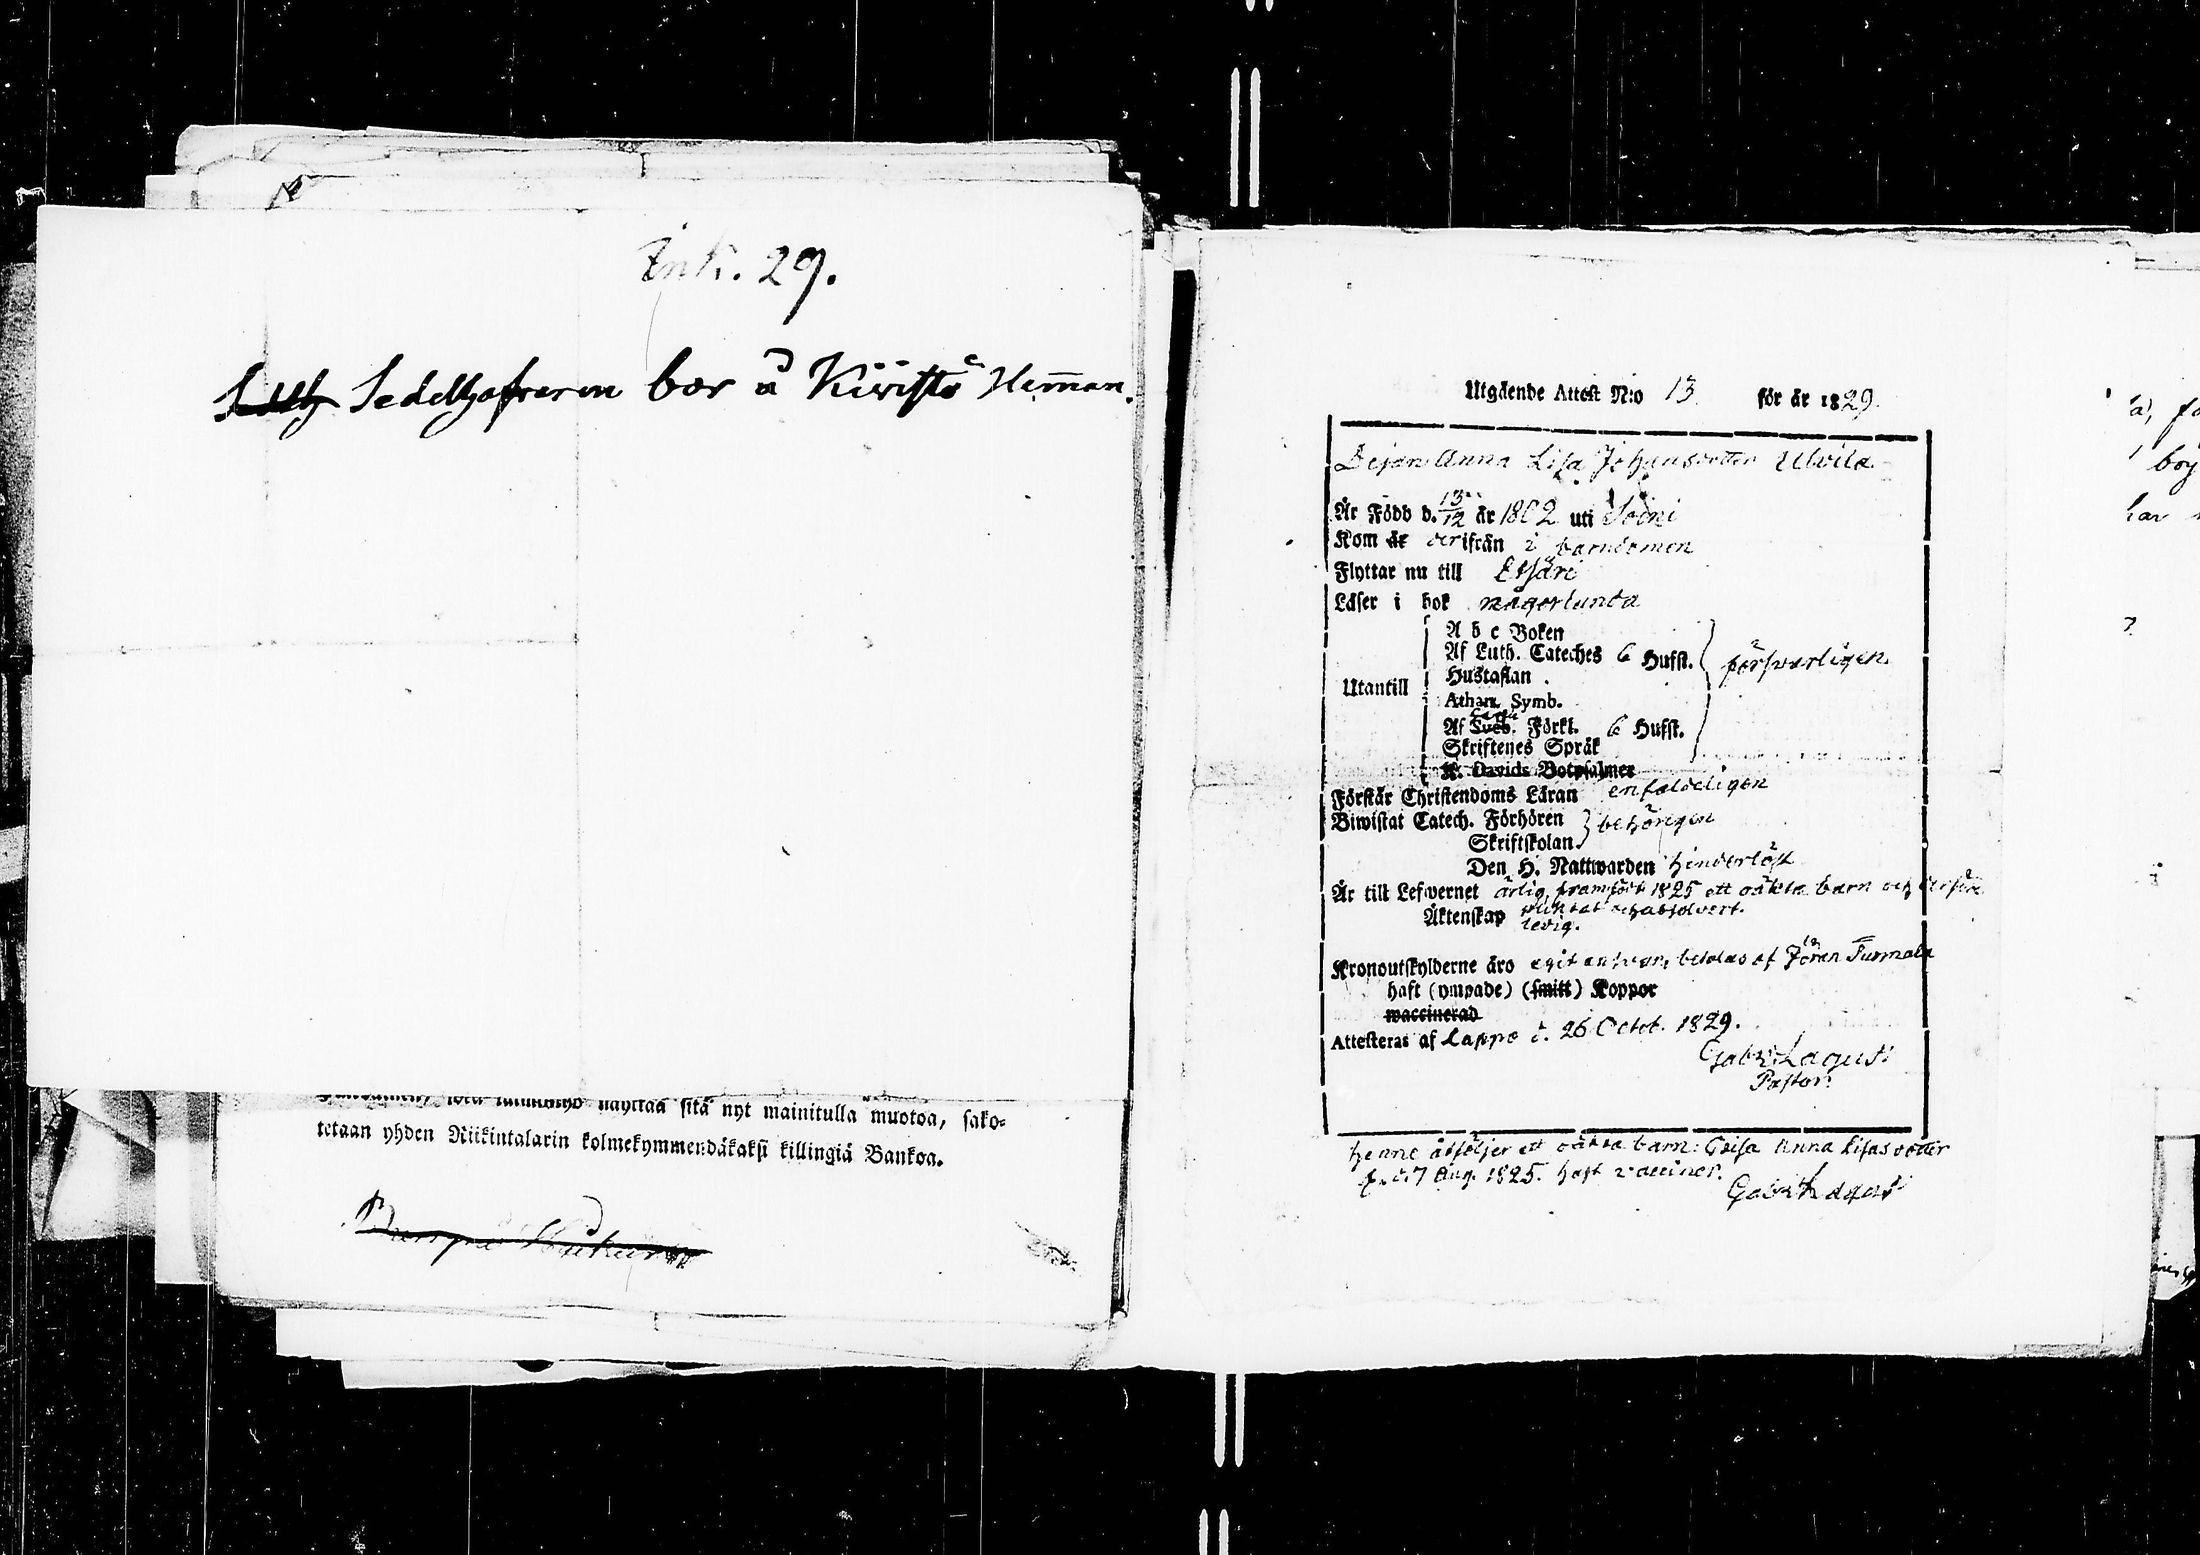 Ink. 29.
Sedelhafraren bor å Kiwistö Heman.
näyttää sitä nyt mainitulla muotoa, sako-
tetaan yhden Riikintalarin kolmekymmendäkaksi killingiä Bankoa.
Utgående Attest N:o 13 för år 1829.
Pigan Anna Lisa Johansdotter Ulvila
Är Född d. 13/12 år 1802 uti Soini
Kom år derifrån i barndomen
Flyttar nu till Etsäri
Läser i bok någorlunda
Utantill
A b c Boken
Af Luth. Cateches 6 Hufst.
Hustaflan
försvarligen.
Athan. Symb.
Af Sveb. Förkl. 6 Hufst.
Skriftenes Språk
K. Davids Botpsalmer
Förstår Christendoms Läran enfaldeligen
Biwistat Catech. Förhören
behörigen
Skriftskolan
Den H. Nattwarden hinderlöst
Är till Lefwernet ärlig, framfödt 1825 ett oäkta barn och derföre
pliktat och absolvert.
Äktenskap ledig.
Kronoutskylderne äro betalas af Jöran Turmala
haft (ympade) (smitt) Koppor
waccinerad
Attesteras af Lappo d. 26 Octob. 1829.
Gabr. Lagus
Pastor.
Henne åtföljer ett oäkta barn: Caisa Anna Lisasdotter
f. d. 7 Aug. 1825. haft vaccinen.
Gabr. Lagus